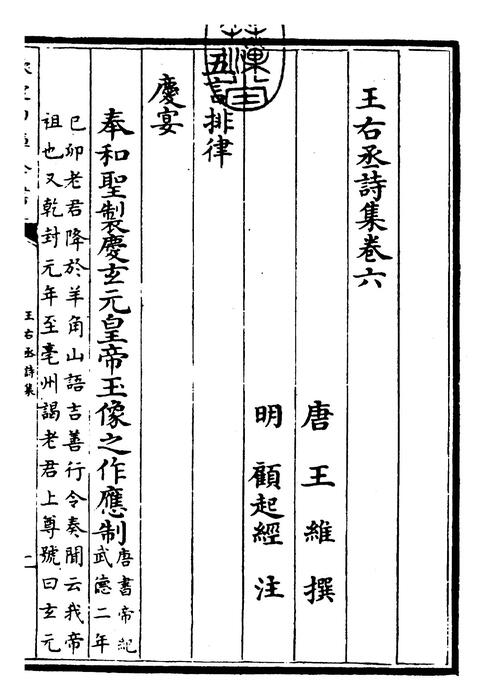 王右丞詩集卷六
唐 王維 撰
明 顧起經 注
五言排律
慶宴
奉和聖製慶玄元皇帝玉像之作應制唐書帝紀
武德二年
已卯老君降於羊角山語吉善行令奏聞云我帝
祖也又乾封元年至亳州謁老君上尊號曰玄元
王右丞詩集